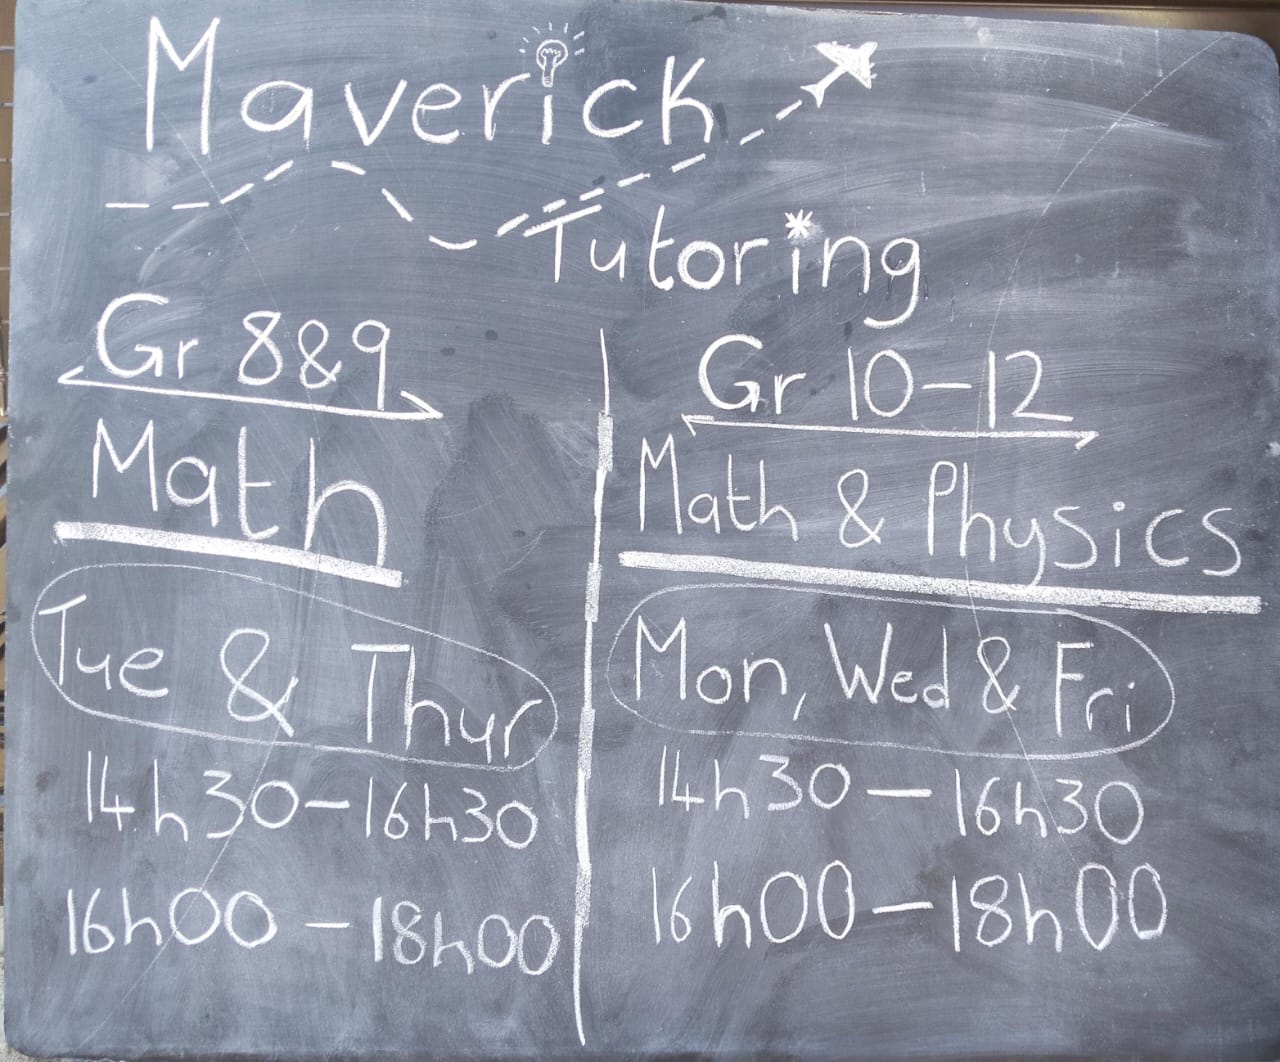 Maverick
Tutoring
Gr 8&9
Math
Tue & Thur
14h30-16h30
16h00 - 18h00
Gr 10-12
Math & Physics
Mon, Wed & Fri
14h30 - 16h30
16h00 - 18h00